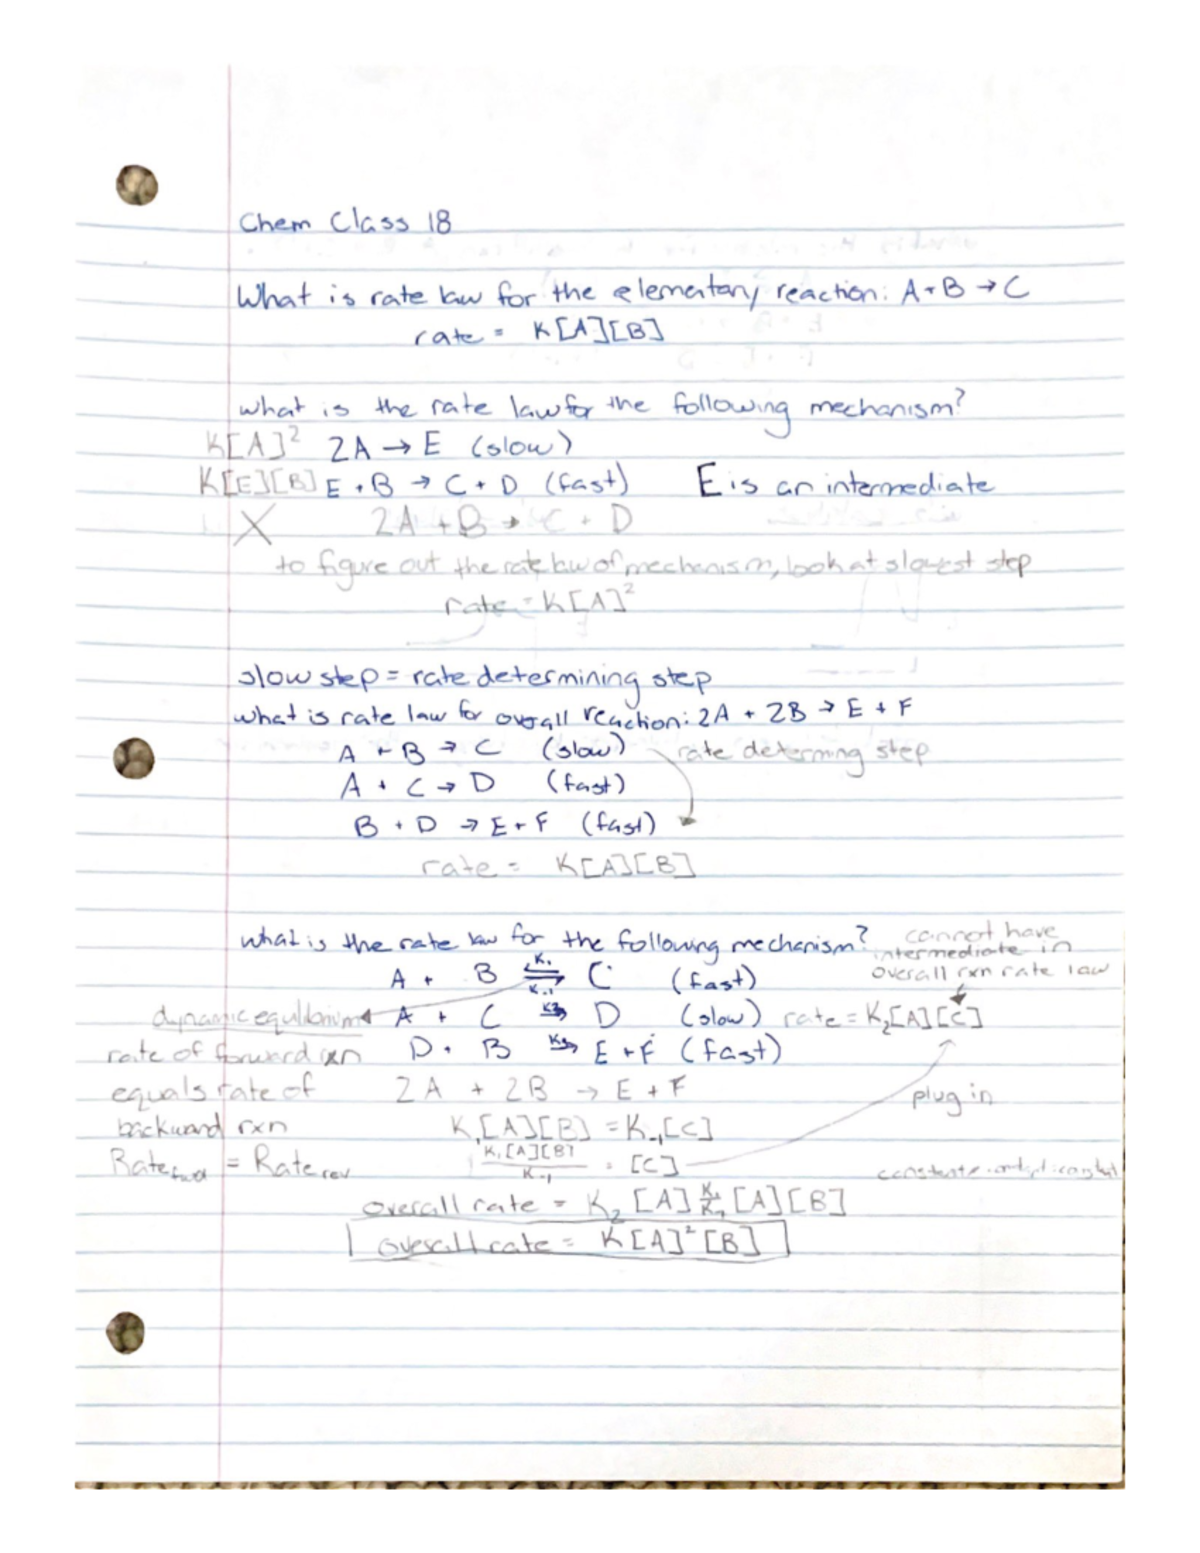 Chem Class 18
What is rate law for the elementary reaction: A + B → C
rate = K[A][B]
what is the rate law for the following mechanism?
K[A]² 2A → E (slow)
K[E][B] E + B → C + D (fast) E is an intermediate
X 2A + B → C + D
to figure out the rate law of mechanism, look at slowest step
rate = K[A]²
slow step = rate determining step
what is rate law for overall reaction: 2A + 2B → E + F
A + B → C (slow) rate determing step
A + C → D (fast)
B + D → E + F (fast)
rate = K[A][B]
what is the rate law for the following mechanism? cannot have
intermediate in
A + B ⇌ C (fast) overall rxn rate law
K₁
K₋₁
dynamic equilibrium A + C → D (slow) rate = K₂[A][C]
rate of forward rxn D + B → E + F (fast)
equals rate of 2A + 2B → E + F plug in
backward rxn K₁[A][B] = K₋₁[C]
Rate fwd = Rate rev K₁[A][B]/K₋₁ = [C]
overall rate = K₂ [A] K₁/K₋₁ [A][B]
overall rate = K[A]²[B]